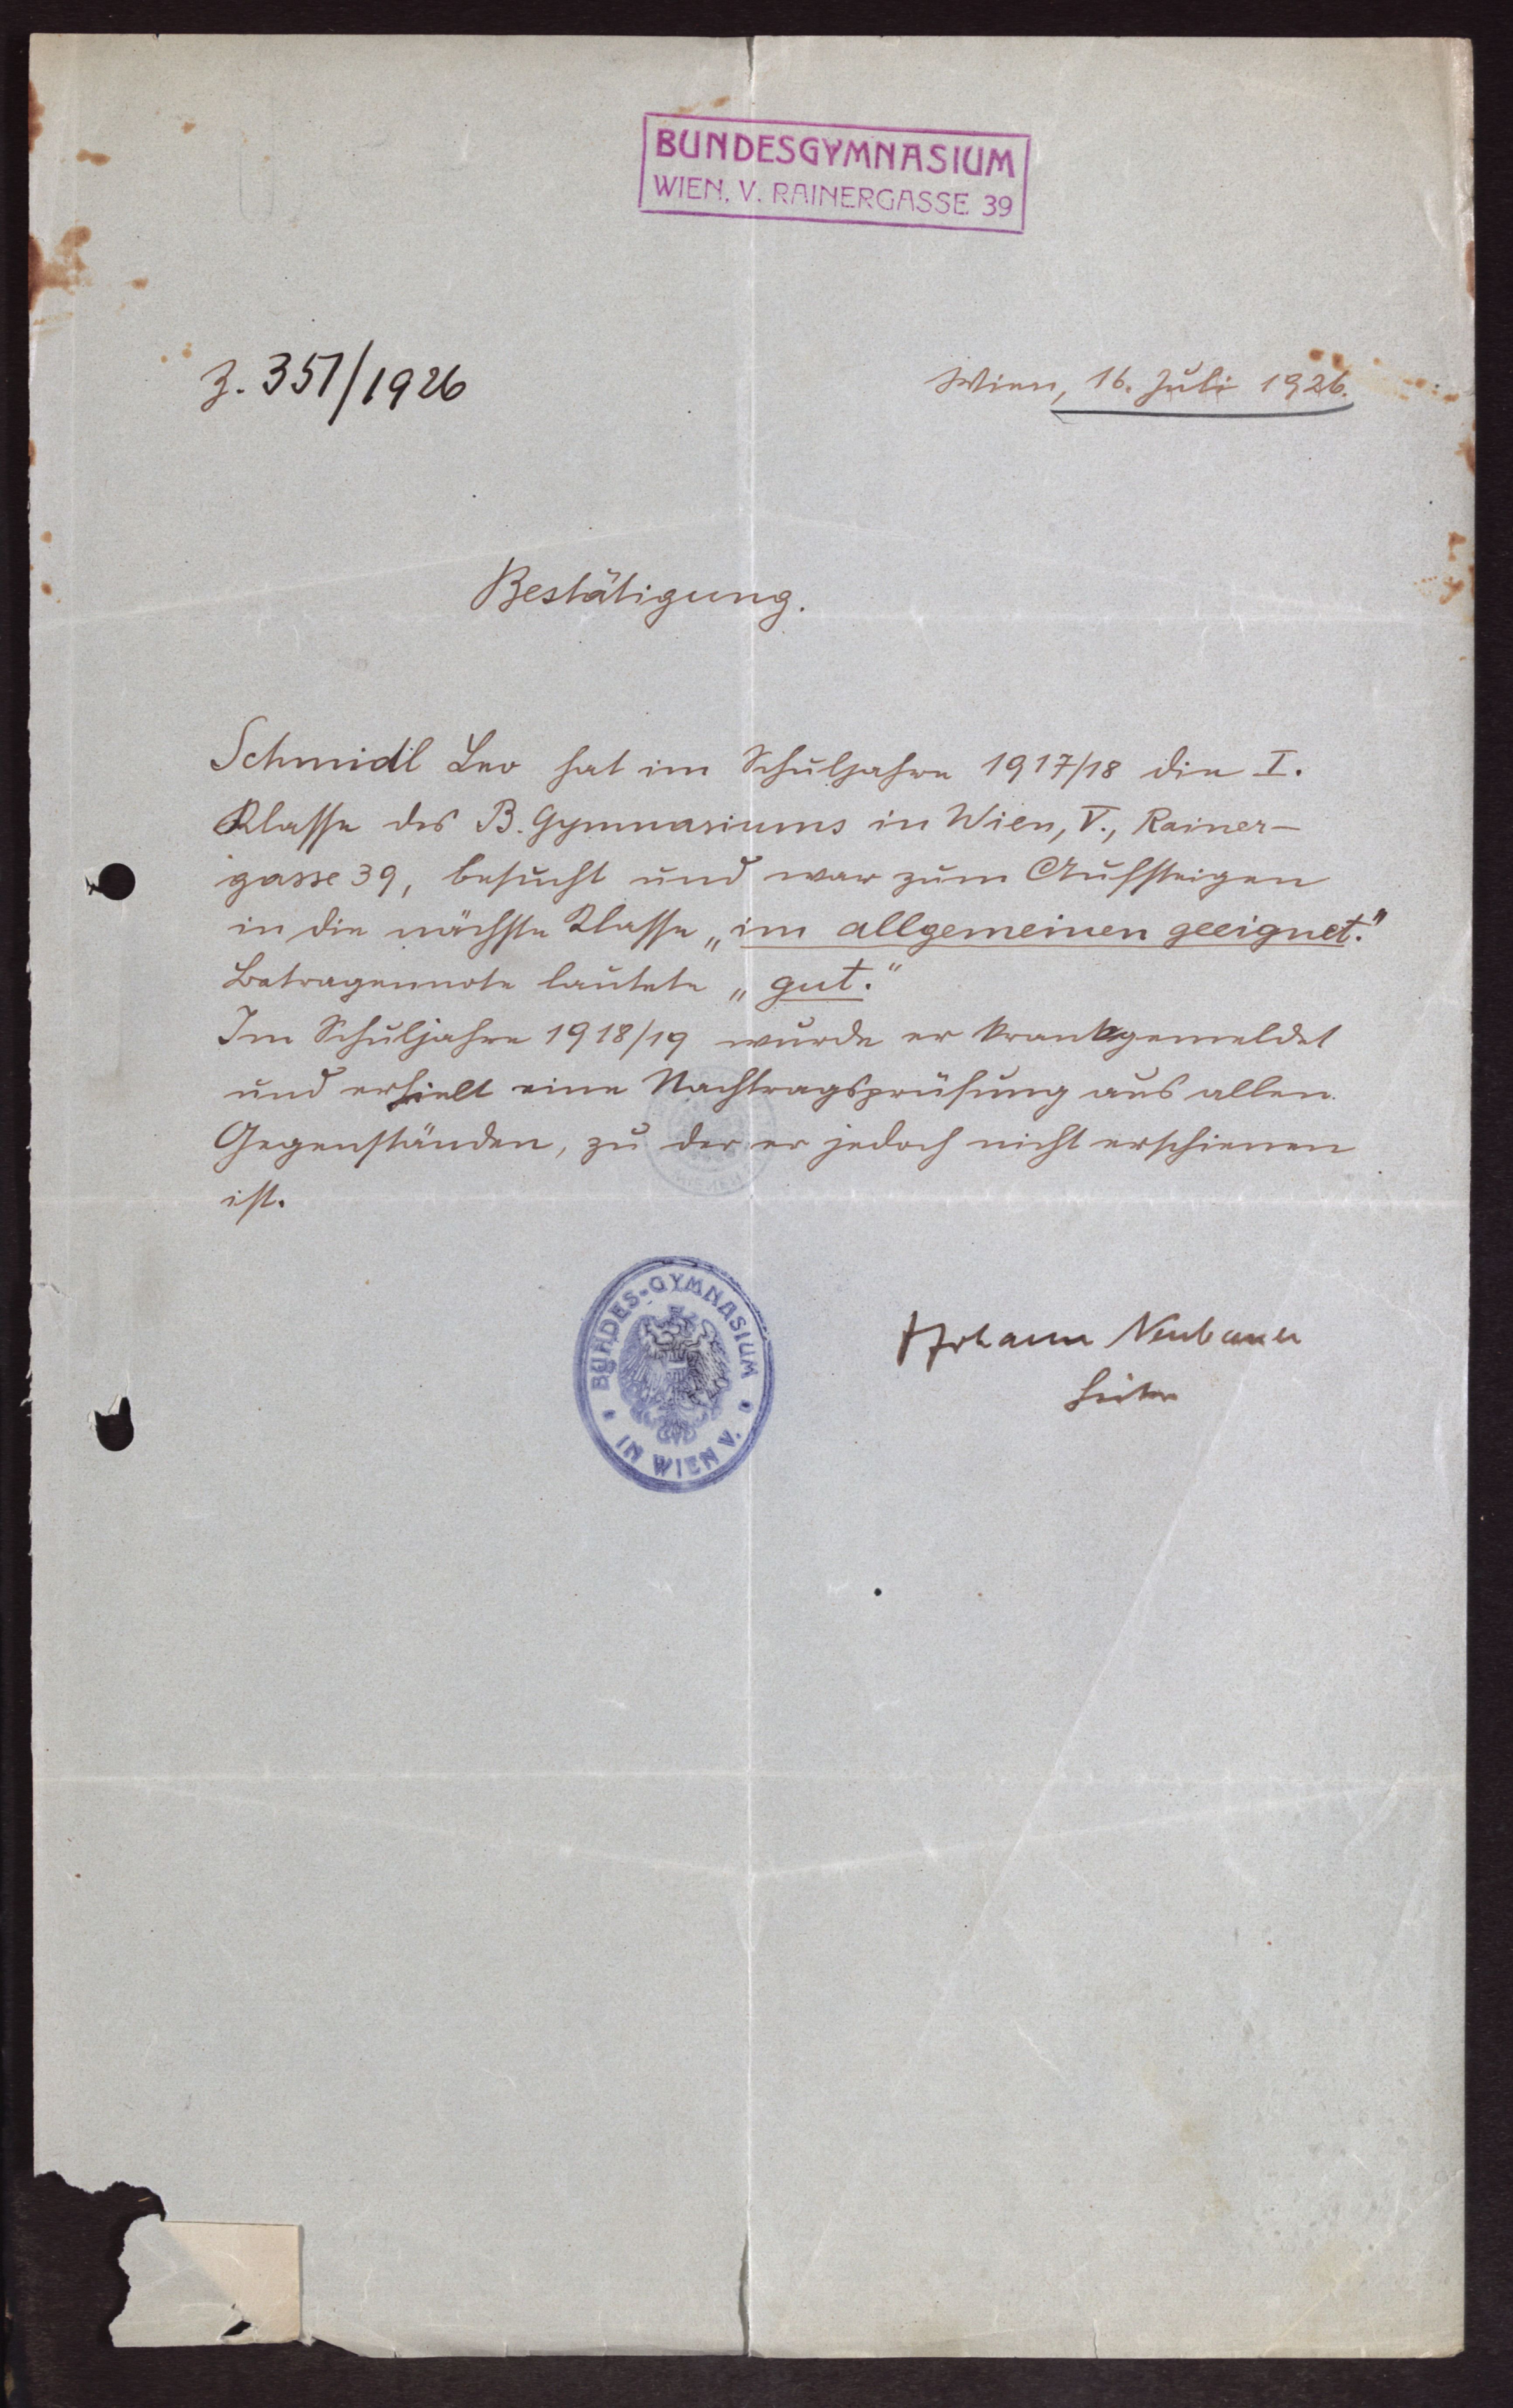 BUNDESGYMNASIUM
WIEN, V. RAINERGASSE 39
Z. 351/1926
Wien, 16. Juli 1926.
Bestätigung.
Schmidl Leo hat im Schuljahre 1917/18 die I.
Klasse des B. Gymnasiums in Wien, V., Rainer-
gasse 39, besucht und war zum Aufsteigen
in die nächste Klasse „im allgemeinen geeignet."
Betragennote lautete „gut."
Im Schuljahre 1918/19 wurde er krankgemeldet
und erhielt eine Nachtragsprüfung aus allen
Gegenständen, zu der er jedoch nicht erschienen
ist.
BUNDES-GYMNASIUM
IN WIEN V.
Johann Neubauer
Leiter